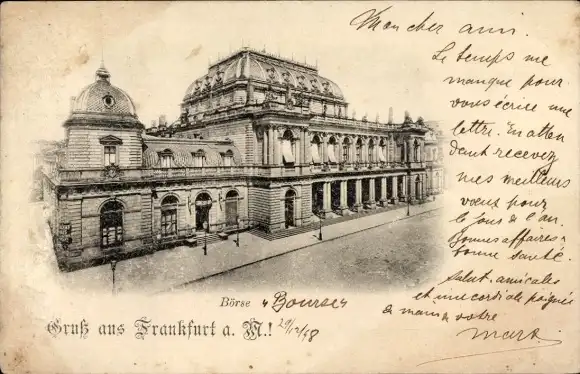 Mon cher ami.
Le temps me
manque pour
vous écrire une
lettre. En atten
dant recevez
mes meilleurs
voeux pour
le jour de l'an.
Bonnes affaires -
bonne santé.
Salut amicales
et une cordiale poignée
de main de votre
Börse "Bourse"
Gruß aus Frankfurt a. M.!